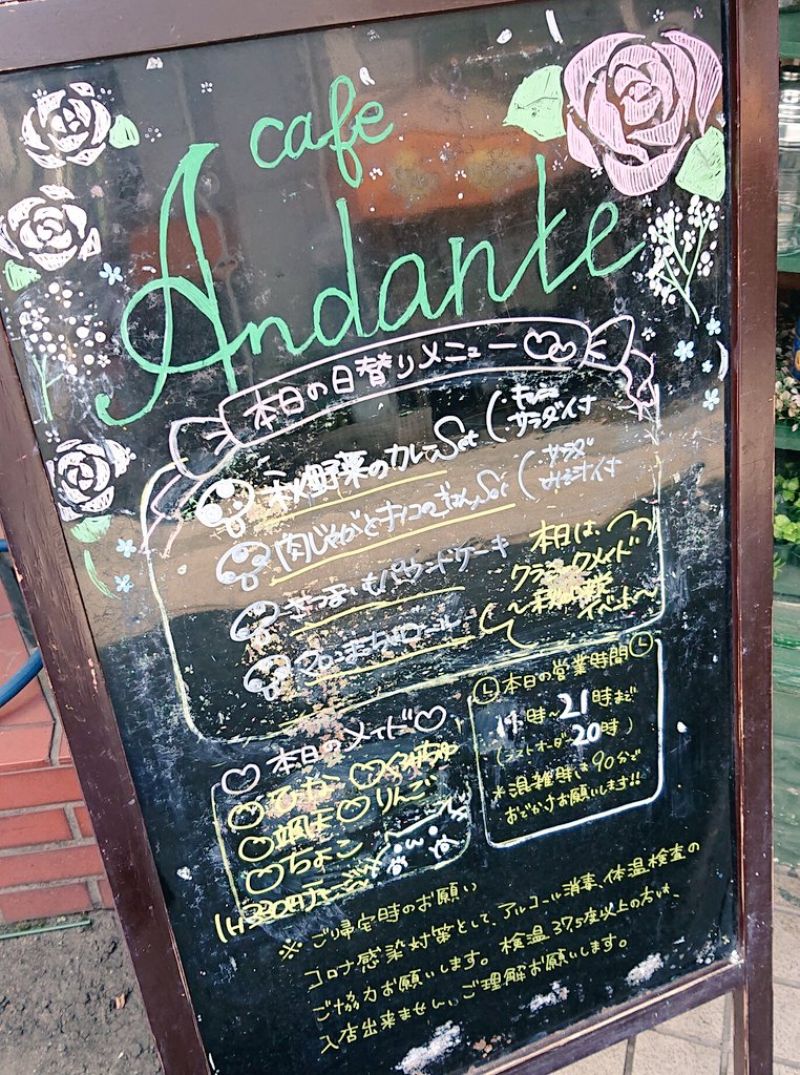 cafe
Andante
本日の日替りメニュー
秋野菜のカレーSet(
サラダ付
肉じゃがとキノコのごはんSet(
サラダ
みそ汁付
さつまいもパウンドケーキ
ロール
本日は、
クラシックメイド
イベント～
本日のメイド
りんご
ちょこ
1H330円チャージ
本日の営業時間
時～21時まで
(ラストオーダー20時)
*混雑時は90分で
おでかけお願いします!!
※ご帰宅時のお願い
コロナ感染対策として、アルコール消毒、体温検査の
ご協力お願いします。検温37.5度以上の方は、
入店出来ません。ご理解お願いします。